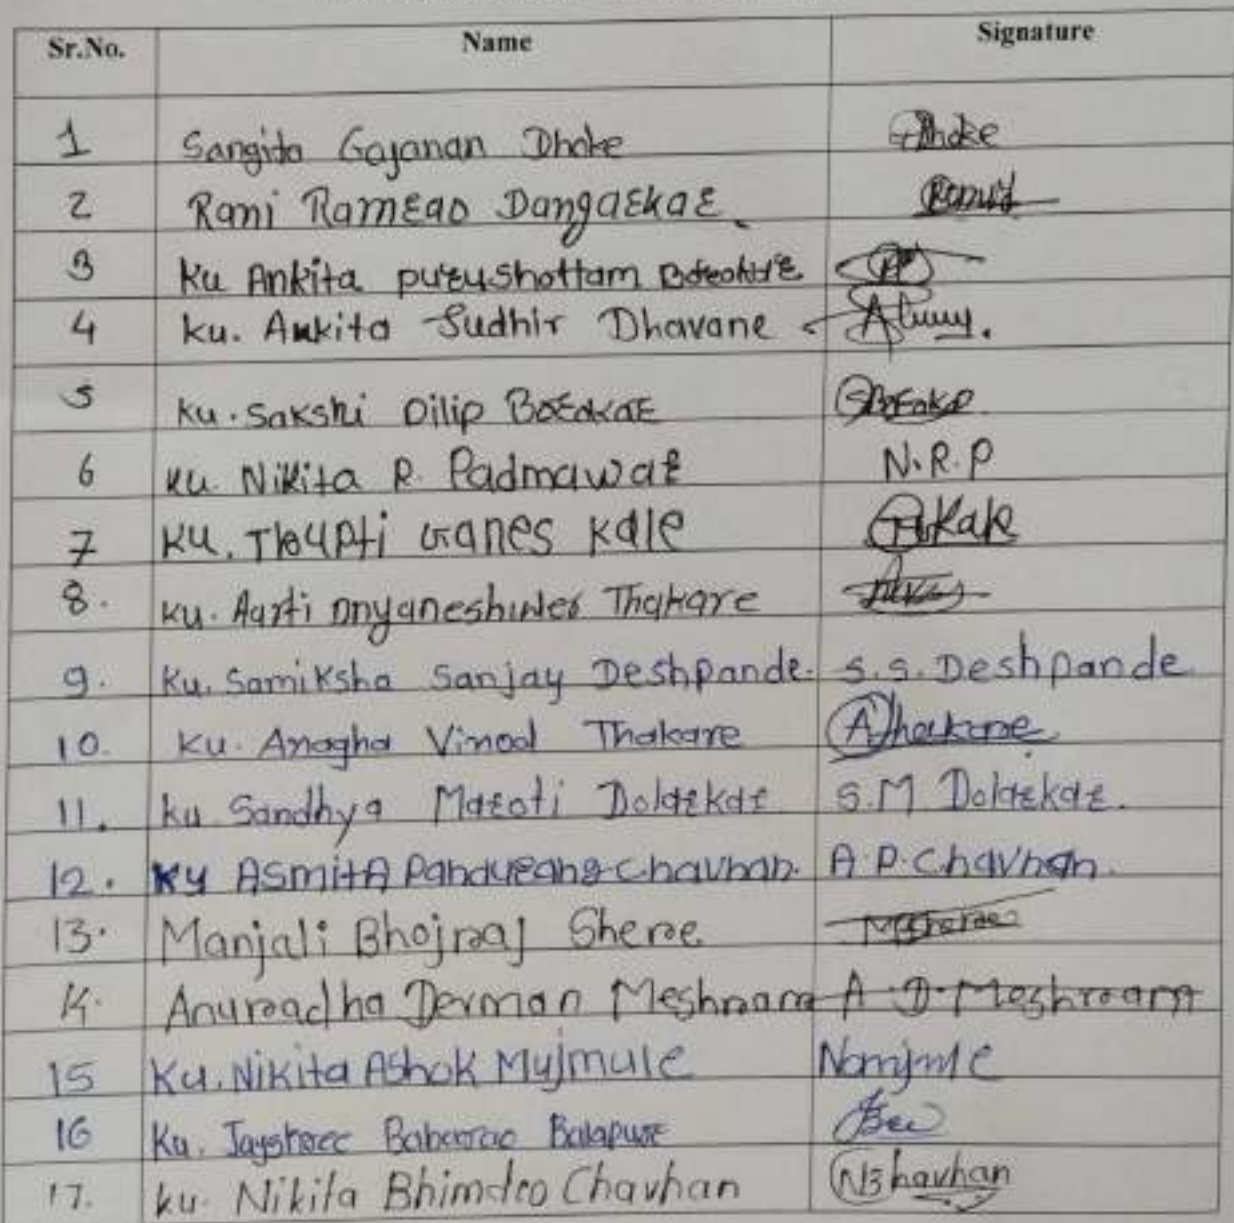 Sr.No. Name Signature
1 Sangita Gajanan Dhoke Dhoke
2 Rani Ramrao Dangarkar
3 Ku Ankita purushottam
4 Ku. Ankita Sudhir Dhavane
5 Ku. Sakshi Dilip Borakar
6 Ku. Nikita R. Padmawar N.R.P
7 Ku. Thrupti Ganes Kale Kale
8. Ku. Aarti Dnyaneshwer Thakare
9. Ku. Samiksha Sanjay Deshpande. S.S. Deshpande
10. Ku. Anagha Vinod Thakare
11. Ku Sandhya Maroti Dolarkar S.M Dolarkar.
12. Ku ASmitA Pandurang Chavhan. A.P. Chavhan.
13. Manjali Bhojraj Shere
14. Anuradha Derman Meshram A.D. Meshraam
15 Ku. Nikita Ashok Mujmule
16 Ku. Jayshree Babarao Balapure
17. Ku. Nikita Bhimdeo Chavhan